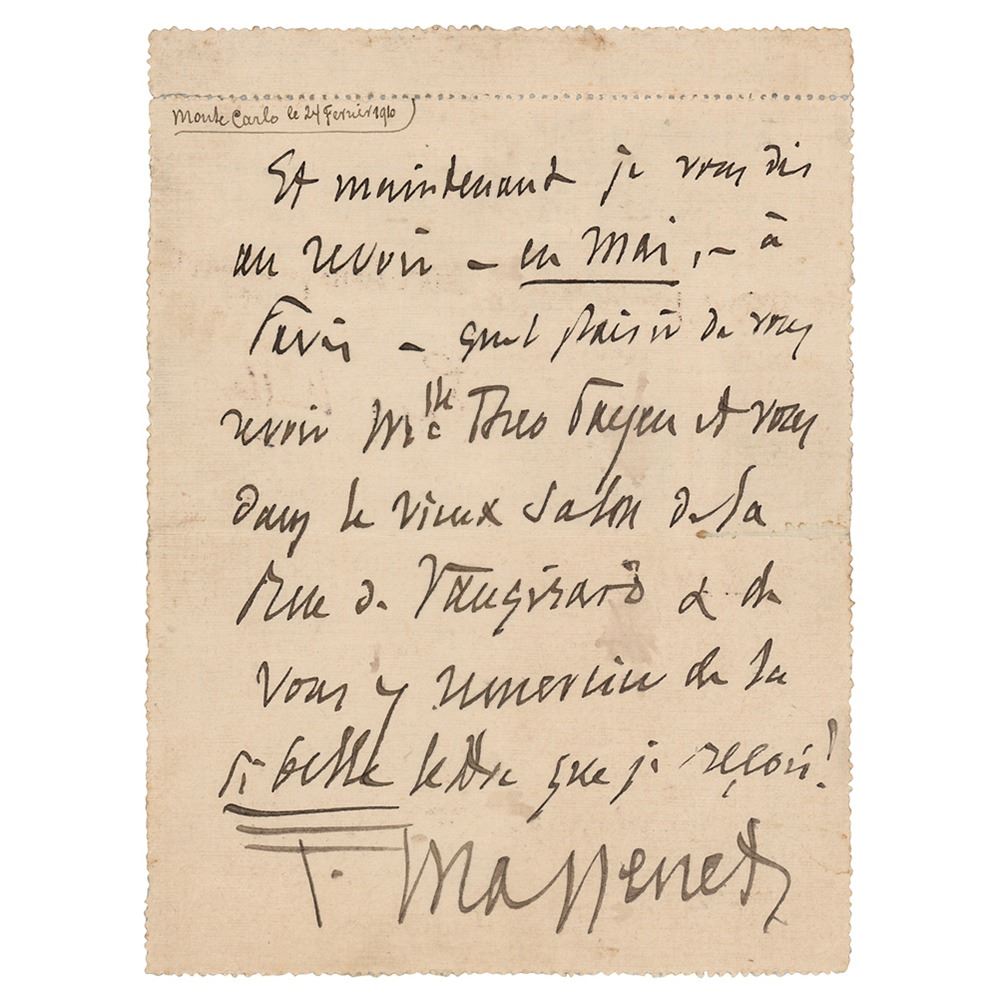 Monte Carlo le 24 Fevrier 1910
Et maintenant je vous dis
au revoir – en Mai, – à
Paris – quel plaisir de vous
revoir Mlle Theo Payen et vous
dans le vieux salon de la
Rue de Vaugirard & de
vous y remercier de la
si belle lettre que je reçois!
J. Massenet